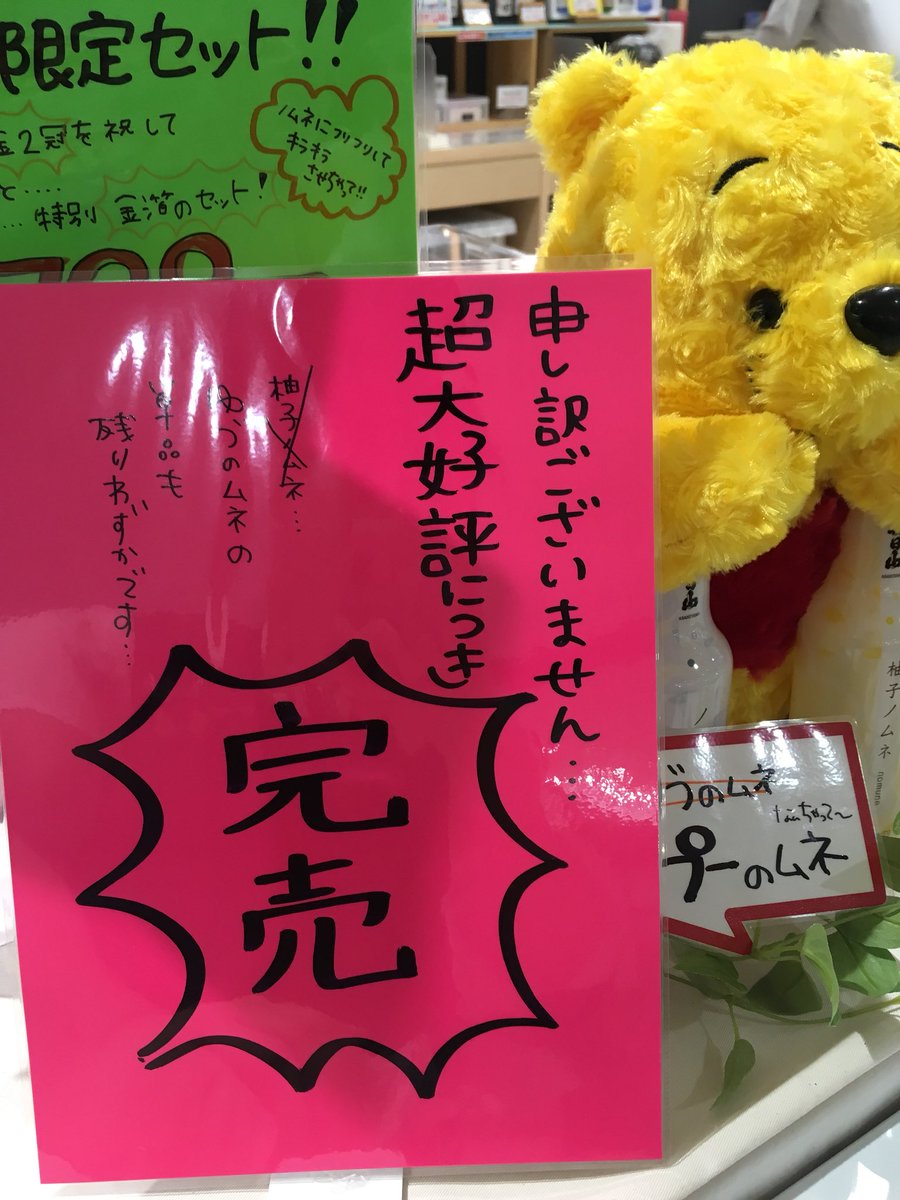 限定セット!!
2冠を祝して
と.....
.... 特別 金箔のセット!
ノムネにフリフリして
キラキラ
させちゃって!!
申し訳ございません...
超大好評につき
完売
柚子ノムネ...
ゆづのムネの
単品も
残りわずかです...
柚子ノムネ
nomune
づのムネ
なんちゃって〜
プーのムネ